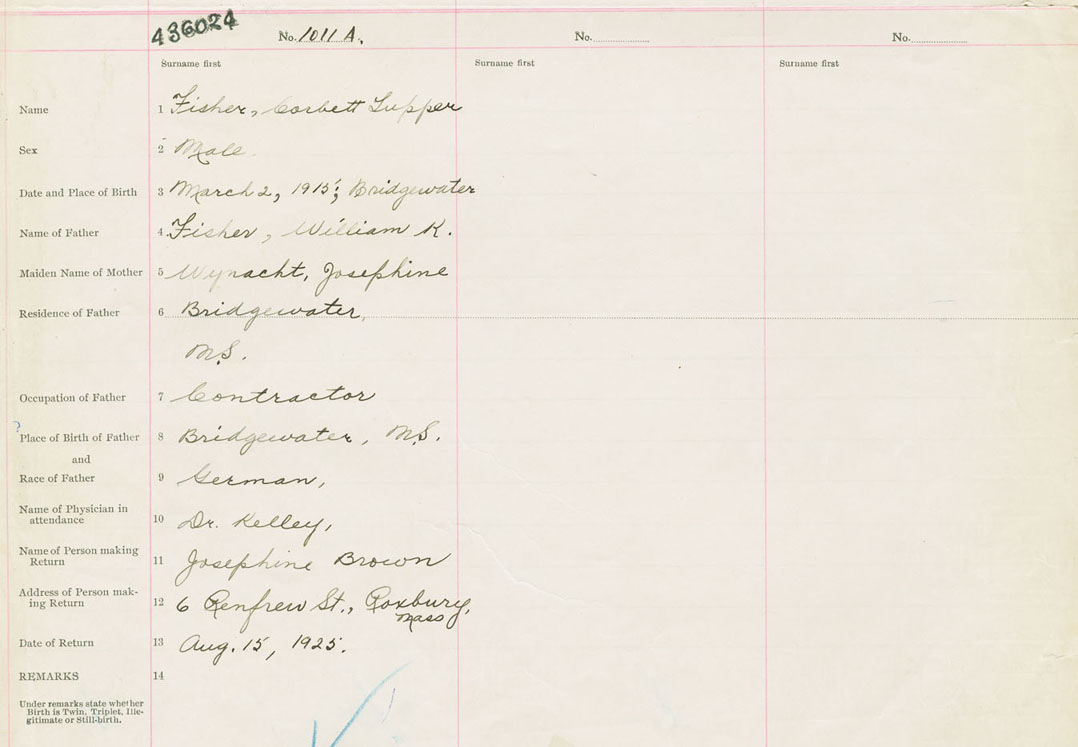 436024
No. 1011 A. No. No.
Surname first Surname first Surname first
Name 1 Fisher, Corbett Tupper
Sex 2 Male
Date and Place of Birth 3 March 2, 1915; Bridgewater
Name of Father 4 Fisher, William K.
Maiden Name of Mother 5 Wynacht, Josephine
Residence of Father 6 Bridgewater,
N.S.
Occupation of Father 7 Contractor
Place of Birth of Father 8 Bridgewater, N.S.
and
Race of Father 9 German,
Name of Physician in
attendance 10 Dr. Kelley,
Name of Person making
Return 11 Josephine Brown
Address of Person mak-
ing Return 12 6 Renfrew St., Roxbury,
Mass
Date of Return 13 Aug. 15, 1925.
REMARKS 14
Under remarks state whether
Birth is Twin, Triplet, Ille-
gitimate or Still-birth.